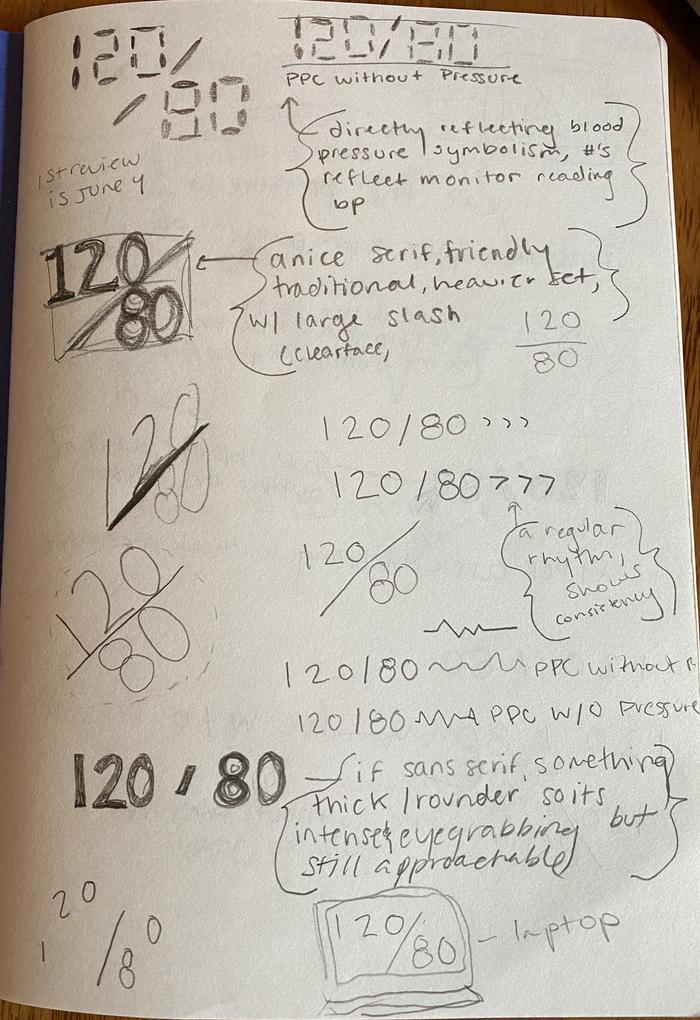 120/
/80
120/80
PPC without Pressure
directly reflecting blood
pressure symbolism, #'s
reflect monitor reading
bp
1st review
is June 4
120/
/80
a nice serif, friendly
traditional, heavier set,
w/ large slash
(clearface,
120
80
120/80
120/80 >>>
120/80 >>>
a regular
rhythm,
shows
consistency
120/80
120/80
120/80 PPC without
120/80 PPC W/O Pressure
120/80
if sans serif, something
thick/rounder so its
intense & eyegrabbing but
still approachable
120/80
120/80 - laptop